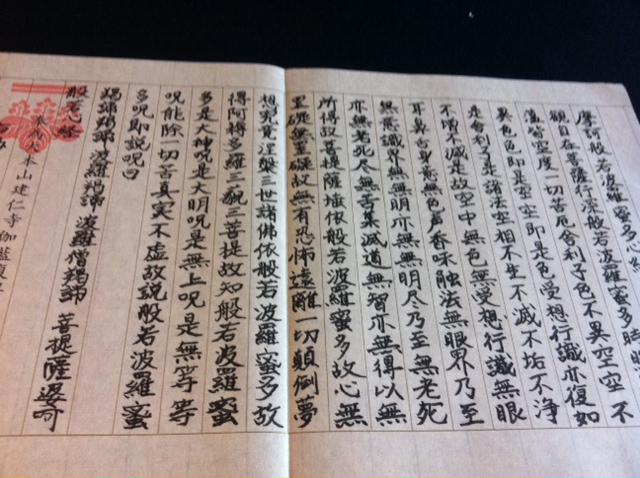 摩訶般若波羅蜜多心
観自在菩薩行深般若波羅蜜多時照
蘊皆空度一切苦厄舎利子色不異空空不
異色色即是空空即是色受想行識亦復如
是舎利子是諸法空相不生不滅不垢不浄
不増不減是故空中無色無受想行識無眼
耳鼻舌身意無色声香味触法無眼界乃至
無意識界無無明亦無無明尽乃至無老死
亦無老死尽無苦集滅道無智亦無得以無
所得故菩提薩埵依般若波羅蜜多故心無
罣礙無罣礙故無有恐怖遠離一切顛倒夢
想究竟涅槃三世諸佛依般若波羅蜜多故
得阿耨多羅三藐三菩提故知般若波羅蜜
多是大神呪是大明呪是無上呪是無等等
呪能除一切苦真実不虚故説般若波羅蜜
多呪即説呪曰
羯諦羯諦 波羅羯諦 波羅僧羯諦 菩提薩婆訶
般若心経
大本山建仁寺 伽藍復